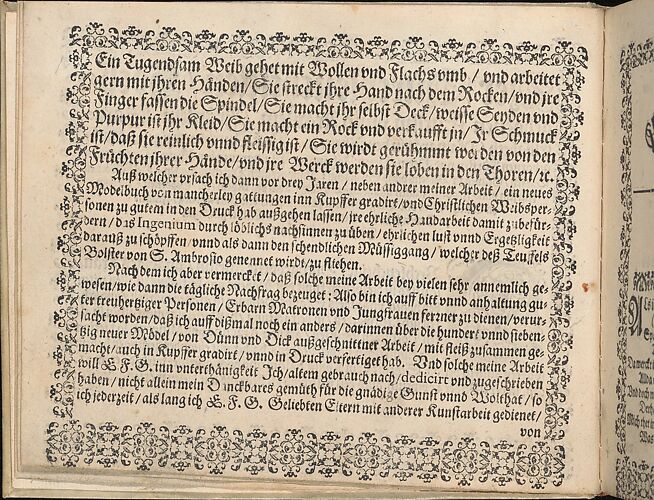 Ein Tugendsam Weib gehet mit Wollen vnd Flachs vmb / vnd arbeitet
gern mit jhren Händen / Sie streckt jhre Hand nach dem Rocken / vnd jre
Finger fassen die Spindel / Sie macht jhr selbst Deck / weisse Seyden vnd
Purpur ist jhr Kleid / Sie macht ein Rock vnd verkaufft jn / Jr Schmuck
ist / daß sie reinlich vnnd fleissig ist / Sie wirdt gerühmmt werden von den
Früchten jhrer Hände / vnd jre Werck werden sie loben in den Thoren / ꝛc.
Auß welcher vrsach ich dann vor drey Jaren / neben andrer meiner Arbeit / ein neues
Modelbuch von mancherley gattungen inn Kupffer gradirt / vnd Christlichen Weibsper-
sonen zu gutem in den Druck hab außgehen lassen / jre ehrliche Handarbeit damit zubefür-
dern / das Ingenium durch löblichs nachsinnen zu üben / ehrlichen lust vnnd Ergetzligkeit
darauß zu schöpffen / vnnd als dann den schendlichen Müssiggang / welcher deß Teuffels
Bolster von S. Ambrosio genennet wirdt / zu fliehen.
Nach dem ich aber vermercket / daß solche meine Arbeit bey vielen sehr annemlich ge-
wesen / wie dann die tägliche Nachfrag bezeuget: Also bin ich auff bitt vnnd anhaltung gu-
ter treuhertziger Personen / Erbarn Matronen vnd Jungfrauen ferner zu dienen / verur-
sacht worden / daß ich auff dißmal noch ein anders / darinnen über die hundert vnnd sieben-
tzig neuer Mödel / von Dünn vnd Dick außgeschnittner Arbeit / mit fleiß zusammen ge-
macht / auch in Kupffer gradirt / vnnd in Druck verfertiget hab. Vnd solche meine Arbeit
will E. F. G. inn vnterthänigkeit Ich / altem gebrauch nach / dedicirt vnd zugeschrieben
haben / nicht allein mein Danckbares gemüth für die gnädige Gunst vnnd Wolthat / so
ich jederzeit / als lang ich E. F. G. Geliebten Eltern mit anderer Kunstarbeit gedienet /
von